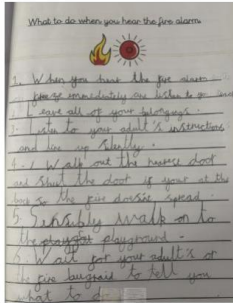 What to do when you hear the fire alarm
1. When you hear the fire alarm
freeze immediately and listen to
2. Leave all of your belongings.
3. Listen to your adult's instructions
and line up silently.
4. Walk out the nearest door
and shut the door if your at the
back so the fire doesnt spread.
5. Sensibly walk on to
the playground.
6. Wait for your adult's or
the fire to tell you
what to do